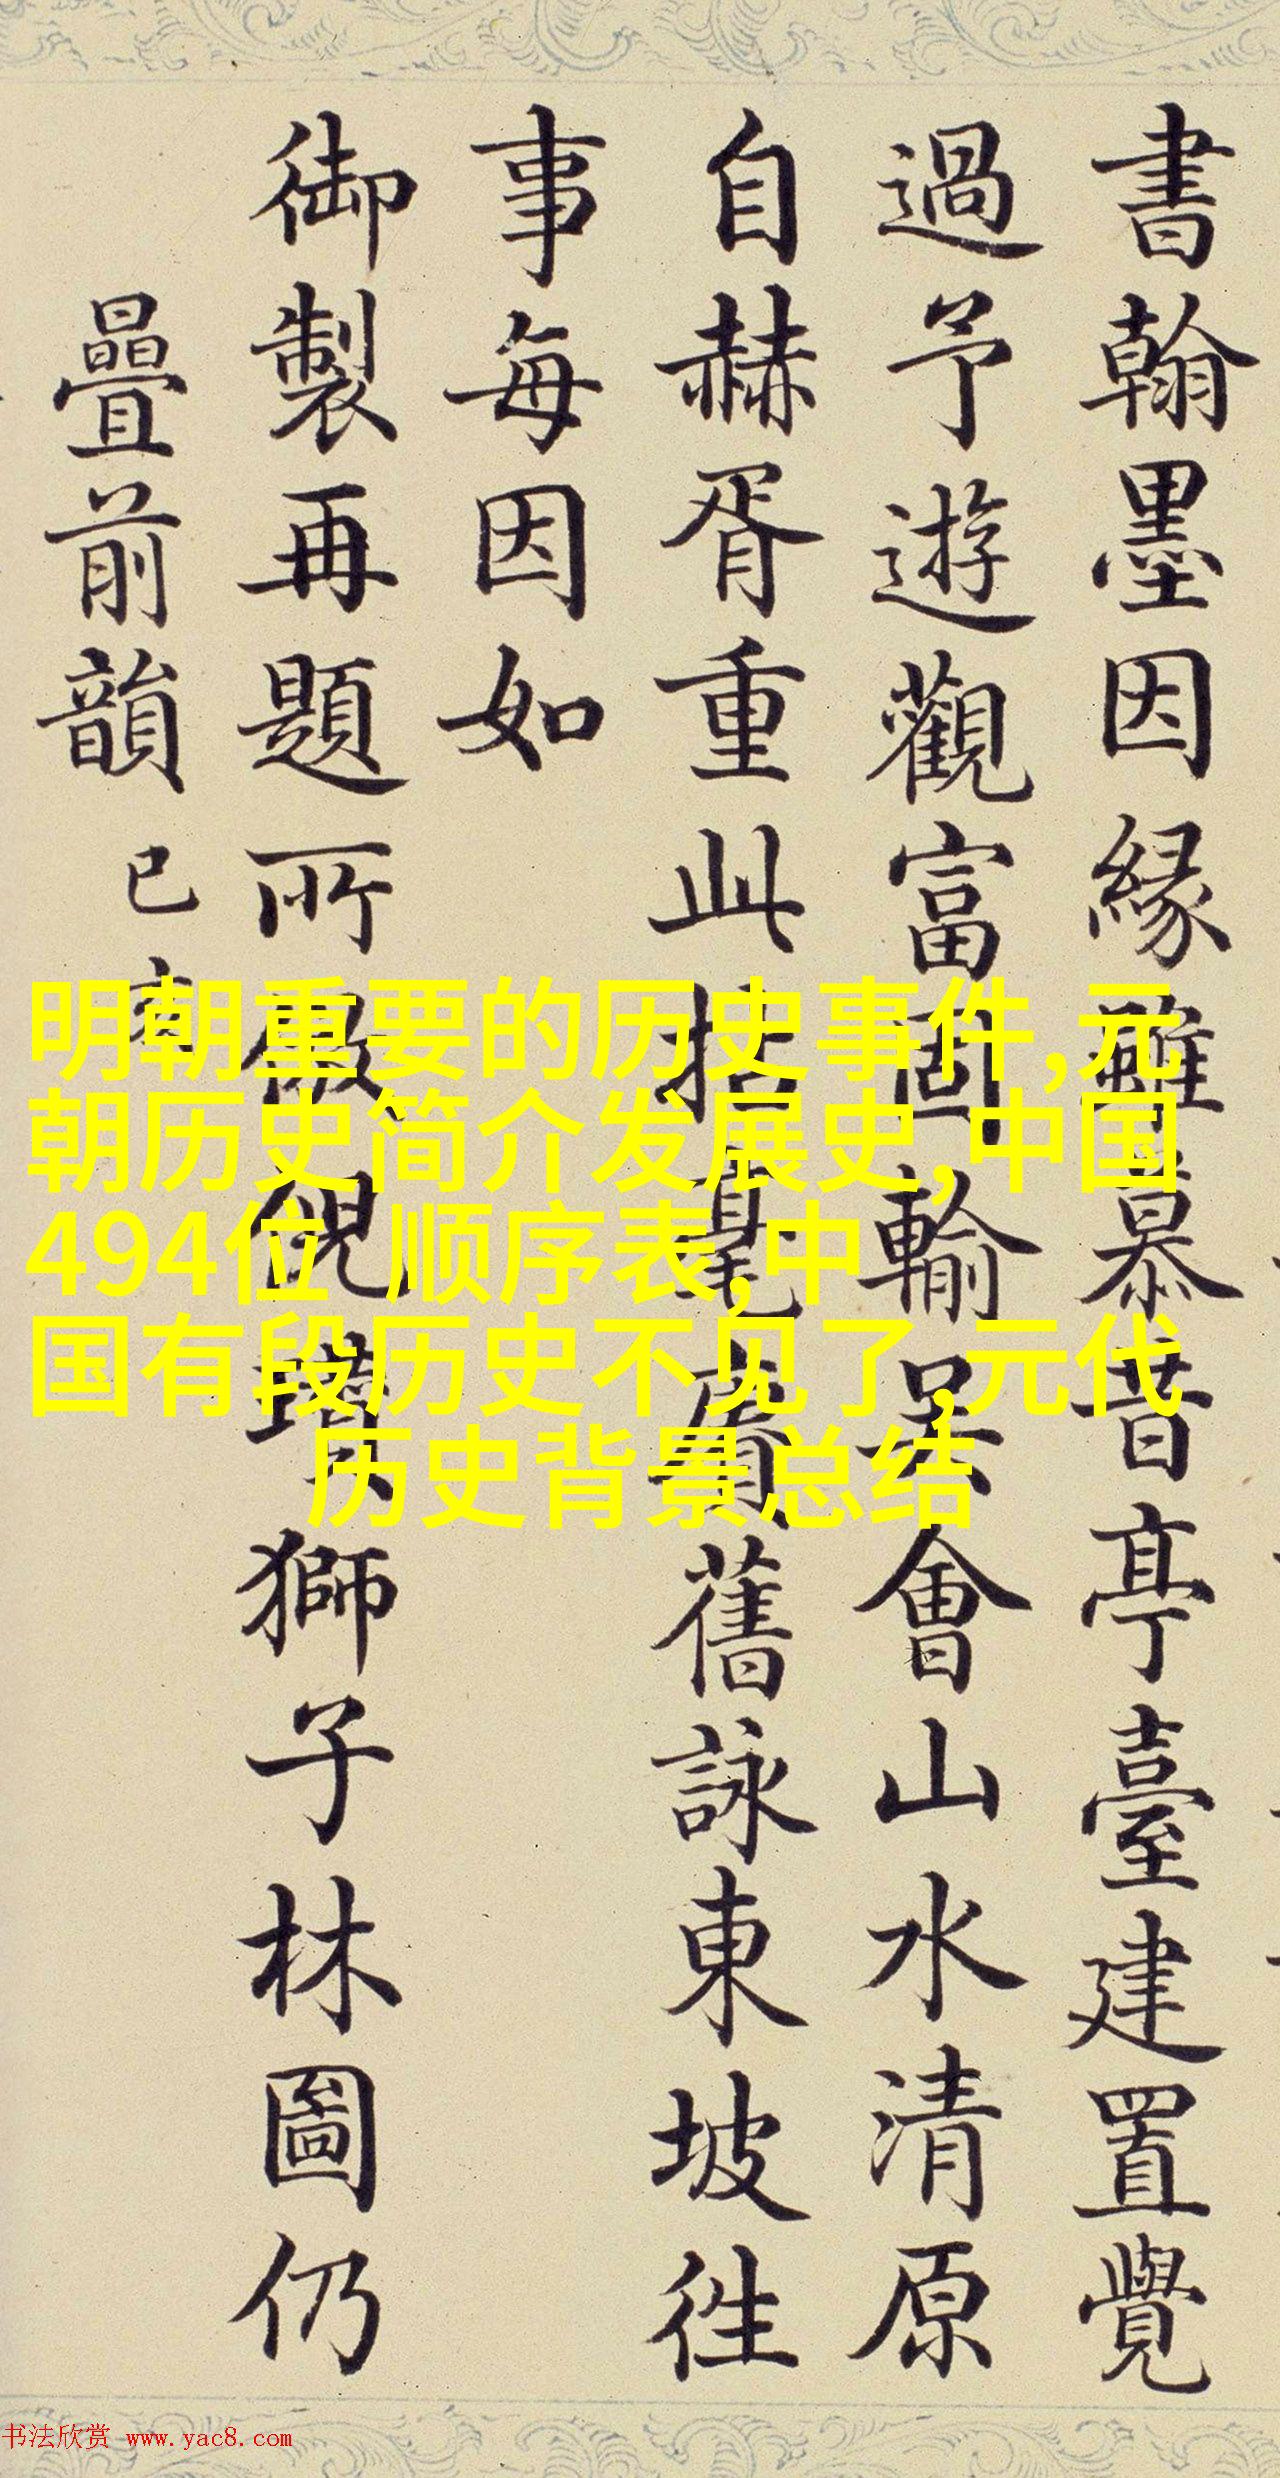 書翰墨因緣雖昔亭臺建置覺
過予遊觀富固輸吳會山水清原
自赫胥重此拈毫賡舊詠東坡徃
事每因如
御製再題所倣倪瓚獅子林圖仍
疊前韻
明朝重要的历史事件,元
朝历史简介发展史,中国
494位 顺序表,中
国有段历史不见了,元代
历史背景总结
书法欣赏 www.yac8.com